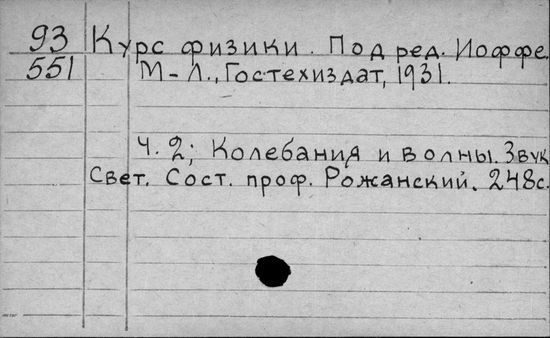 93 Курс физики. Под ред. Иоффе.
551 М-Л., Гостехиздат, 1931.
Ч. 2; Колебания и волны. Звук
Свет. Сост. проф. Рожанский. 248с.